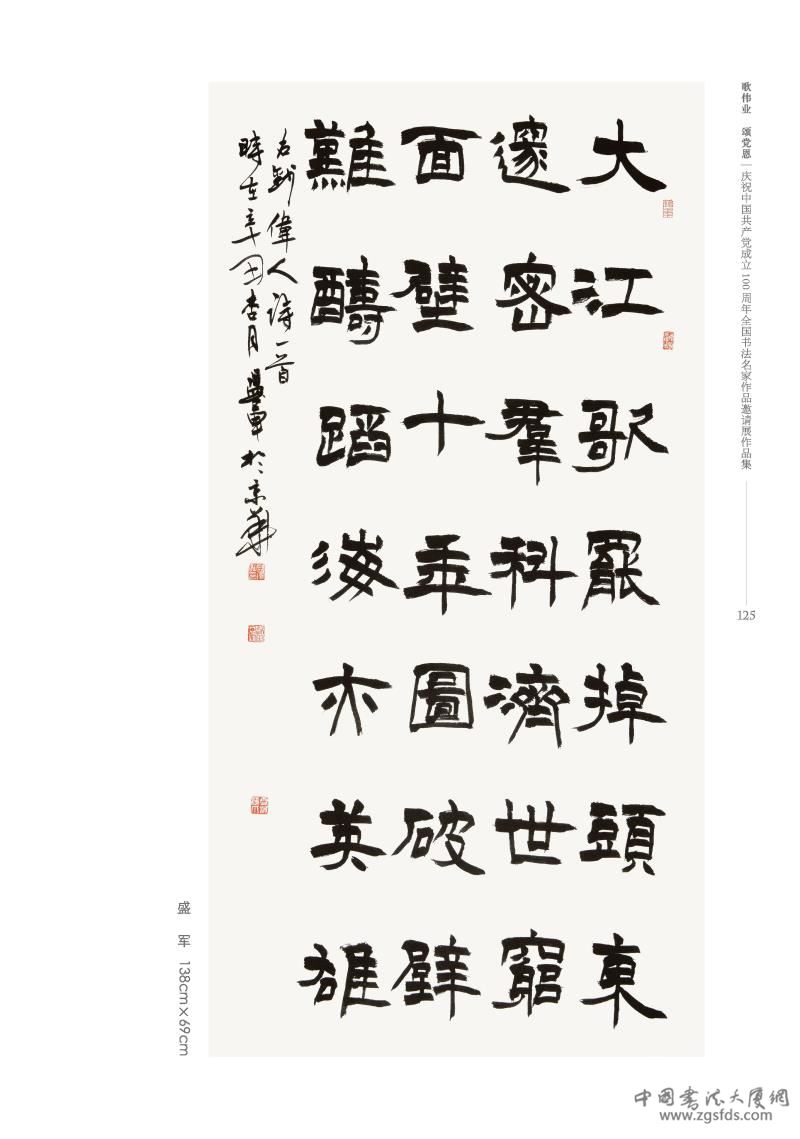 歌伟业 颂党恩 | 庆祝中国共产党成立100周年全国书法名家作品邀请展作品集
125
大江歌罷掉頭東
邃密羣科濟世窮
面壁十年圖破壁
難醻蹈海亦英雄
右鈔偉人詩一首
時在辛丑杏月盛軍於京華
盛 军 138cm×69cm
中國書法大厦網
www.zgsfds.com